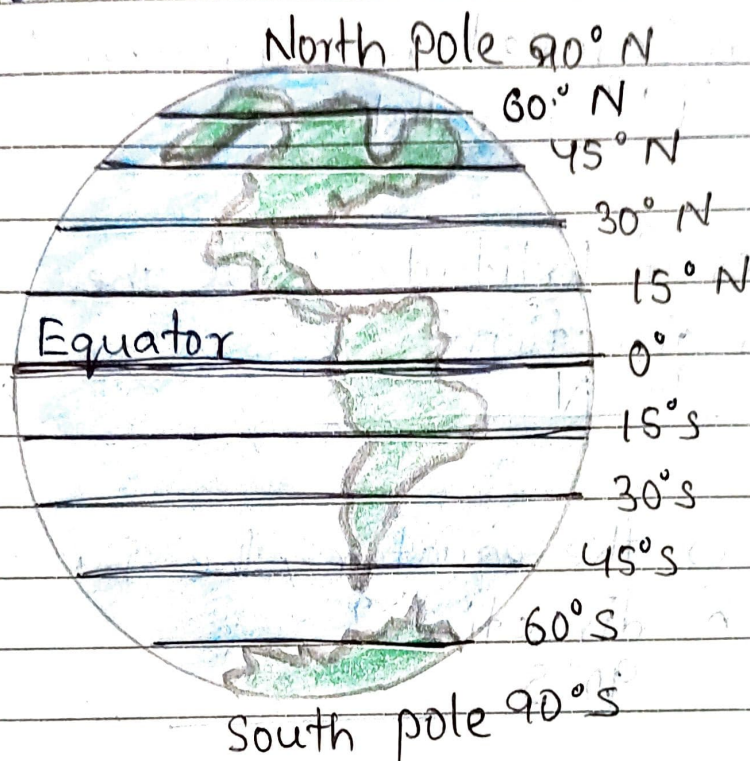 North pole 90° N
60° N
45° N
30° N
15° N
Equator
0°
15°S
30°S
45°S
60°S
South pole 90°S